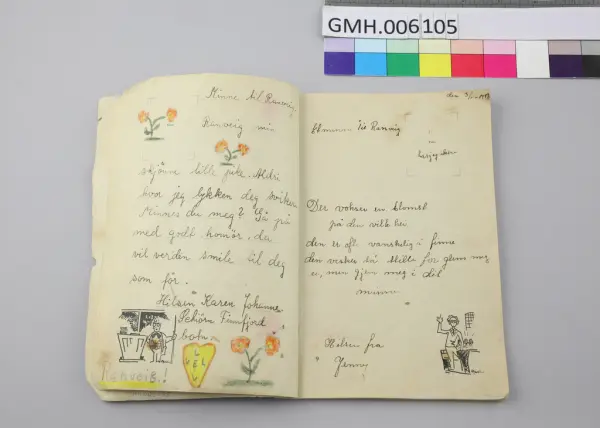 GMH.006105
Minne til Ranveig.
Ranveig min
skjønne lille pike. Aldri
hvor jeg lykken deg sviker
Minnes du meg? Gå på
med godt humör, da
vil verden smile til deg
som før.
Hilsen Karen Johanne
Finnfjord
Ranveig.!
den
Et minne til Ranveig
Der vokser en blomst
på den ville hei
den er oft vanskelig å finne
den visker så stille for glem meg
ei, men gjem meg i ditt
minne
Hilsen fra
Jenny